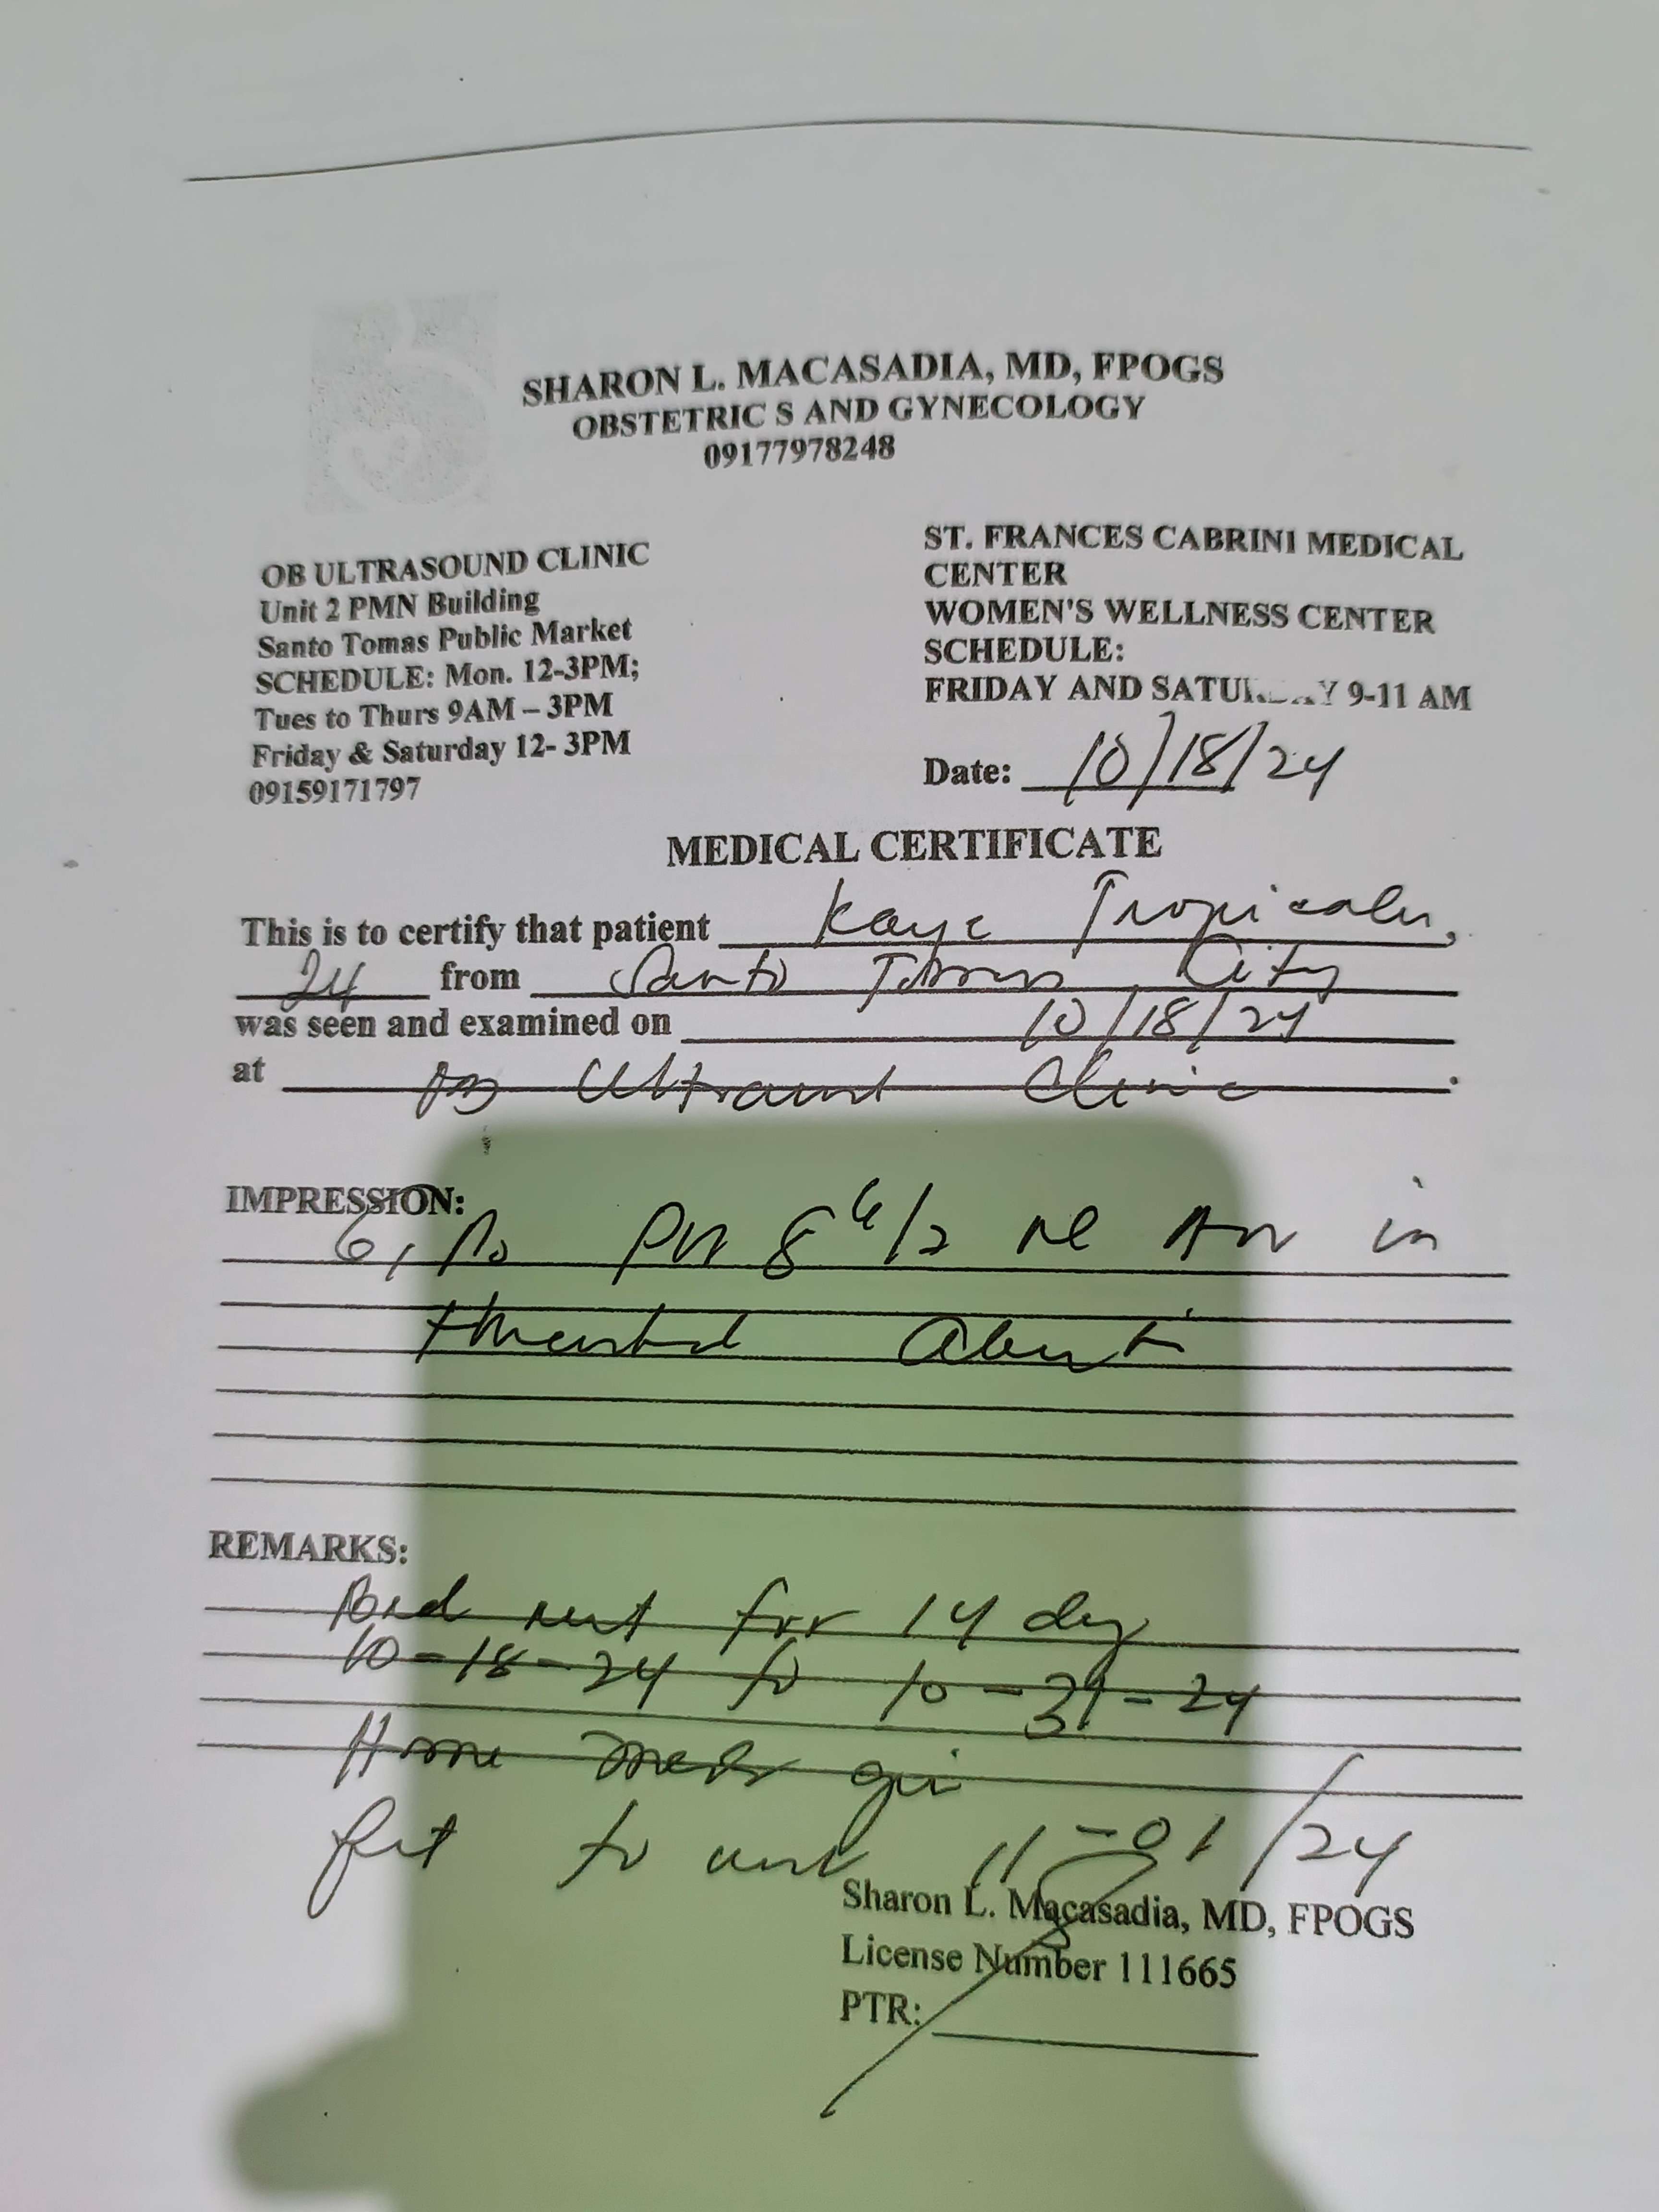 SHARON L. MACASADIA, MD, FPOGS
OBSTETRIC S AND GYNECOLOGY
09177978248
OB ULTRASOUND CLINIC
Unit 2 PMN Building
Santo Tomas Public Market
SCHEDULE: Mon. 12-3PM;
Tues to Thurs 9AM – 3PM
Friday & Saturday 12- 3PM
09159171797
ST. FRANCES CABRINI MEDICAL
CENTER
WOMEN'S WELLNESS CENTER
SCHEDULE:
FRIDAY AND SATURDAY 9-11 AM
Date: 10/18/24
MEDICAL CERTIFICATE
This is to certify that patient Kaye
24 from Santo Tomas City
was seen and examined on 10/18/24
at OB Ultrasound Clinic.
IMPRESSION:
in
threatened
REMARKS:
Bed rest for 14 days
10-18-24 to 10-31-24
Home meds
fit to work 11-01/24
Sharon L. Macasadia, MD, FPOGS
License Number 111665
PTR: